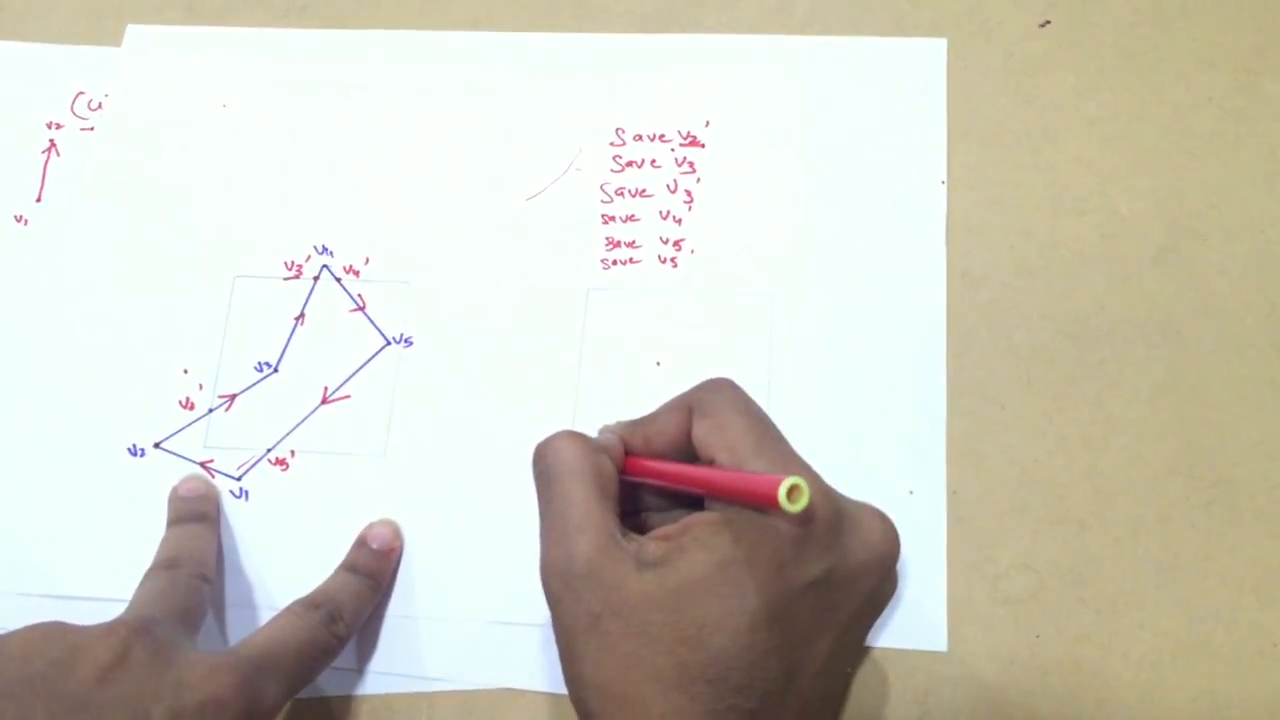 v2
v1
Save v2'
Save v3
Save v3'
save v4'
save v5
save v5'
v4
v3'
v4'
v5
v3
v2'
v2
v5'
v1